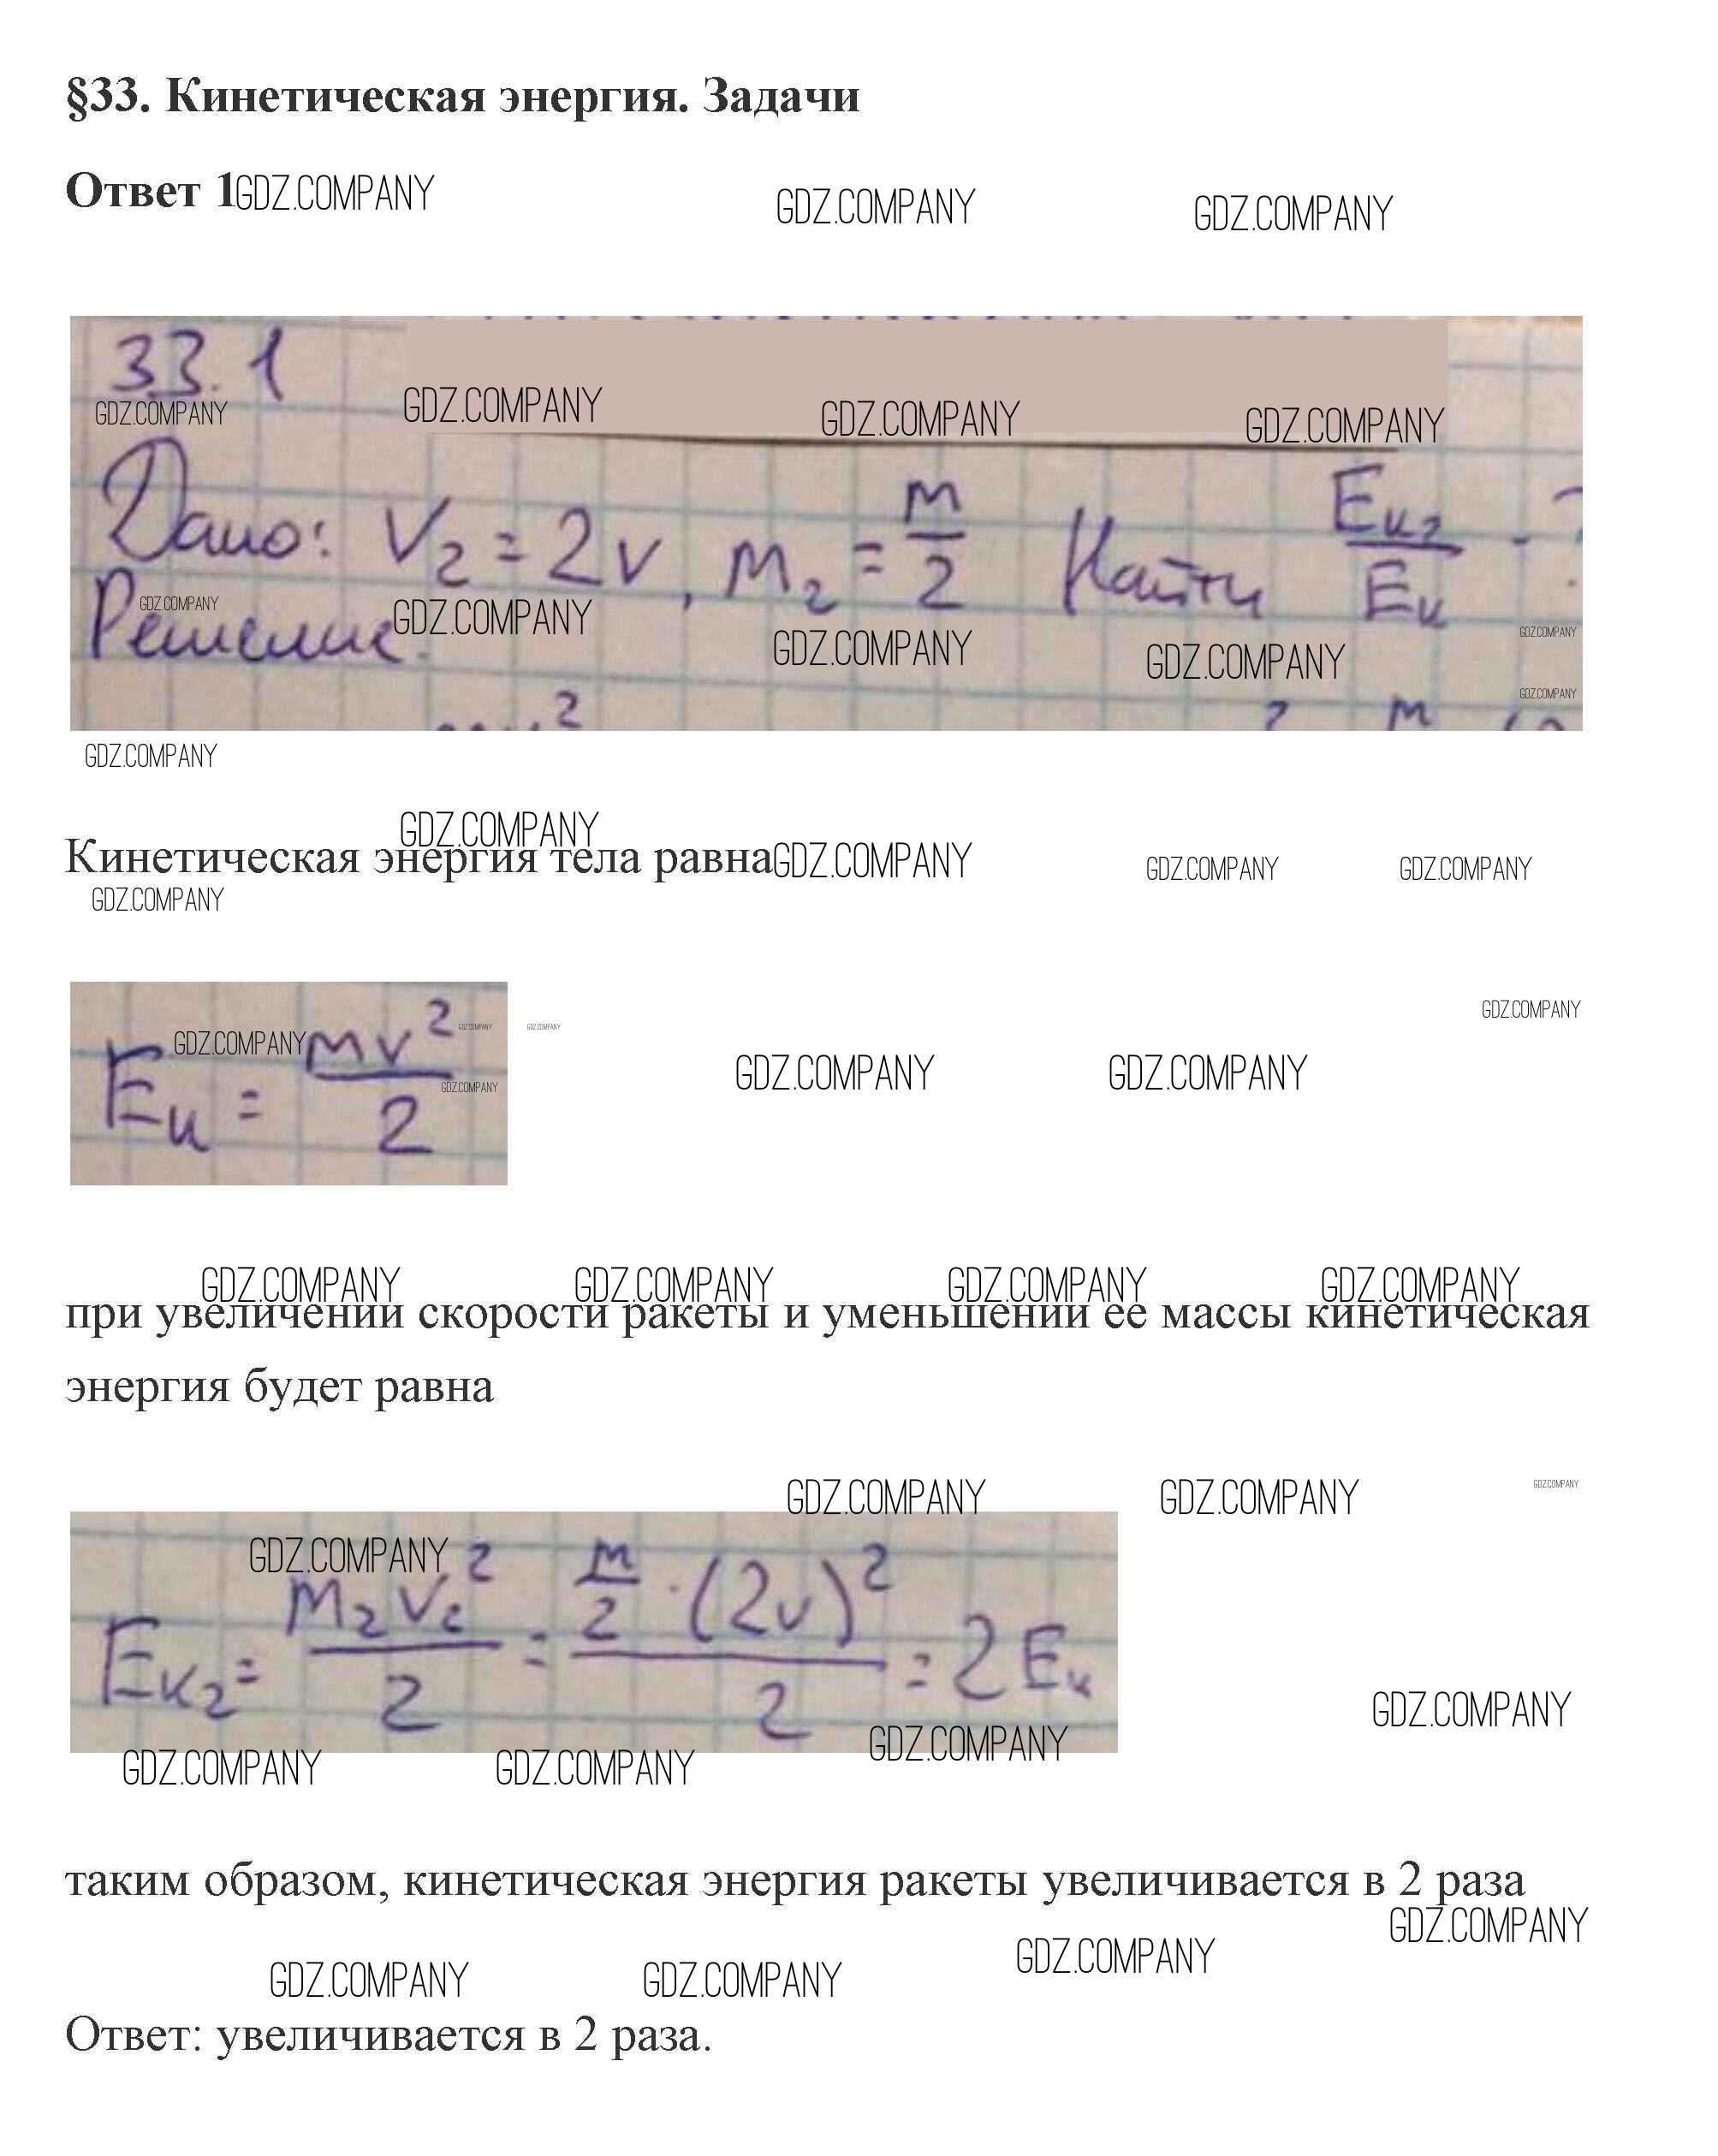 §33. Кинетическая энергия. Задачи
Ответ 1GDZ.COMPANY GDZ.COMPANY GDZ.COMPANY
33.1
GDZ.COMPANY GDZ.COMPANY GDZ.COMPANY GDZ.COMPANY
Дано: V₂ = 2v, m₂ = m/2 Найти Eк₂/Eк - ?
GDZ.COMPANY
Решение. GDZ.COMPANY GDZ.COMPANY GDZ.COMPANY GDZ.COMPANY
GDZ.COMPANY
GDZ.COMPANY
GDZ.COMPANY
Кинетическая энергия тела равна GDZ.COMPANY GDZ.COMPANY GDZ.COMPANY
GDZ.COMPANY
GDZ.COMPANY
GDZ.COMPANY GDZ.COMPANY GDZ.COMPANY
Eк = mv²/2
GDZ.COMPANY GDZ.COMPANY GDZ.COMPANY
GDZ.COMPANY GDZ.COMPANY GDZ.COMPANY GDZ.COMPANY
при увеличении скорости ракеты и уменьшении ее массы кинетическая
энергия будет равна
GDZ.COMPANY GDZ.COMPANY GDZ.COMPANY
GDZ.COMPANY
Eк₂ = m₂v₂²/2 = m/2 · (2v)²/2 = 2Eк
GDZ.COMPANY
GDZ.COMPANY GDZ.COMPANY GDZ.COMPANY
таким образом, кинетическая энергия ракеты увеличивается в 2 раза
GDZ.COMPANY
GDZ.COMPANY GDZ.COMPANY GDZ.COMPANY
Ответ: увеличивается в 2 раза.